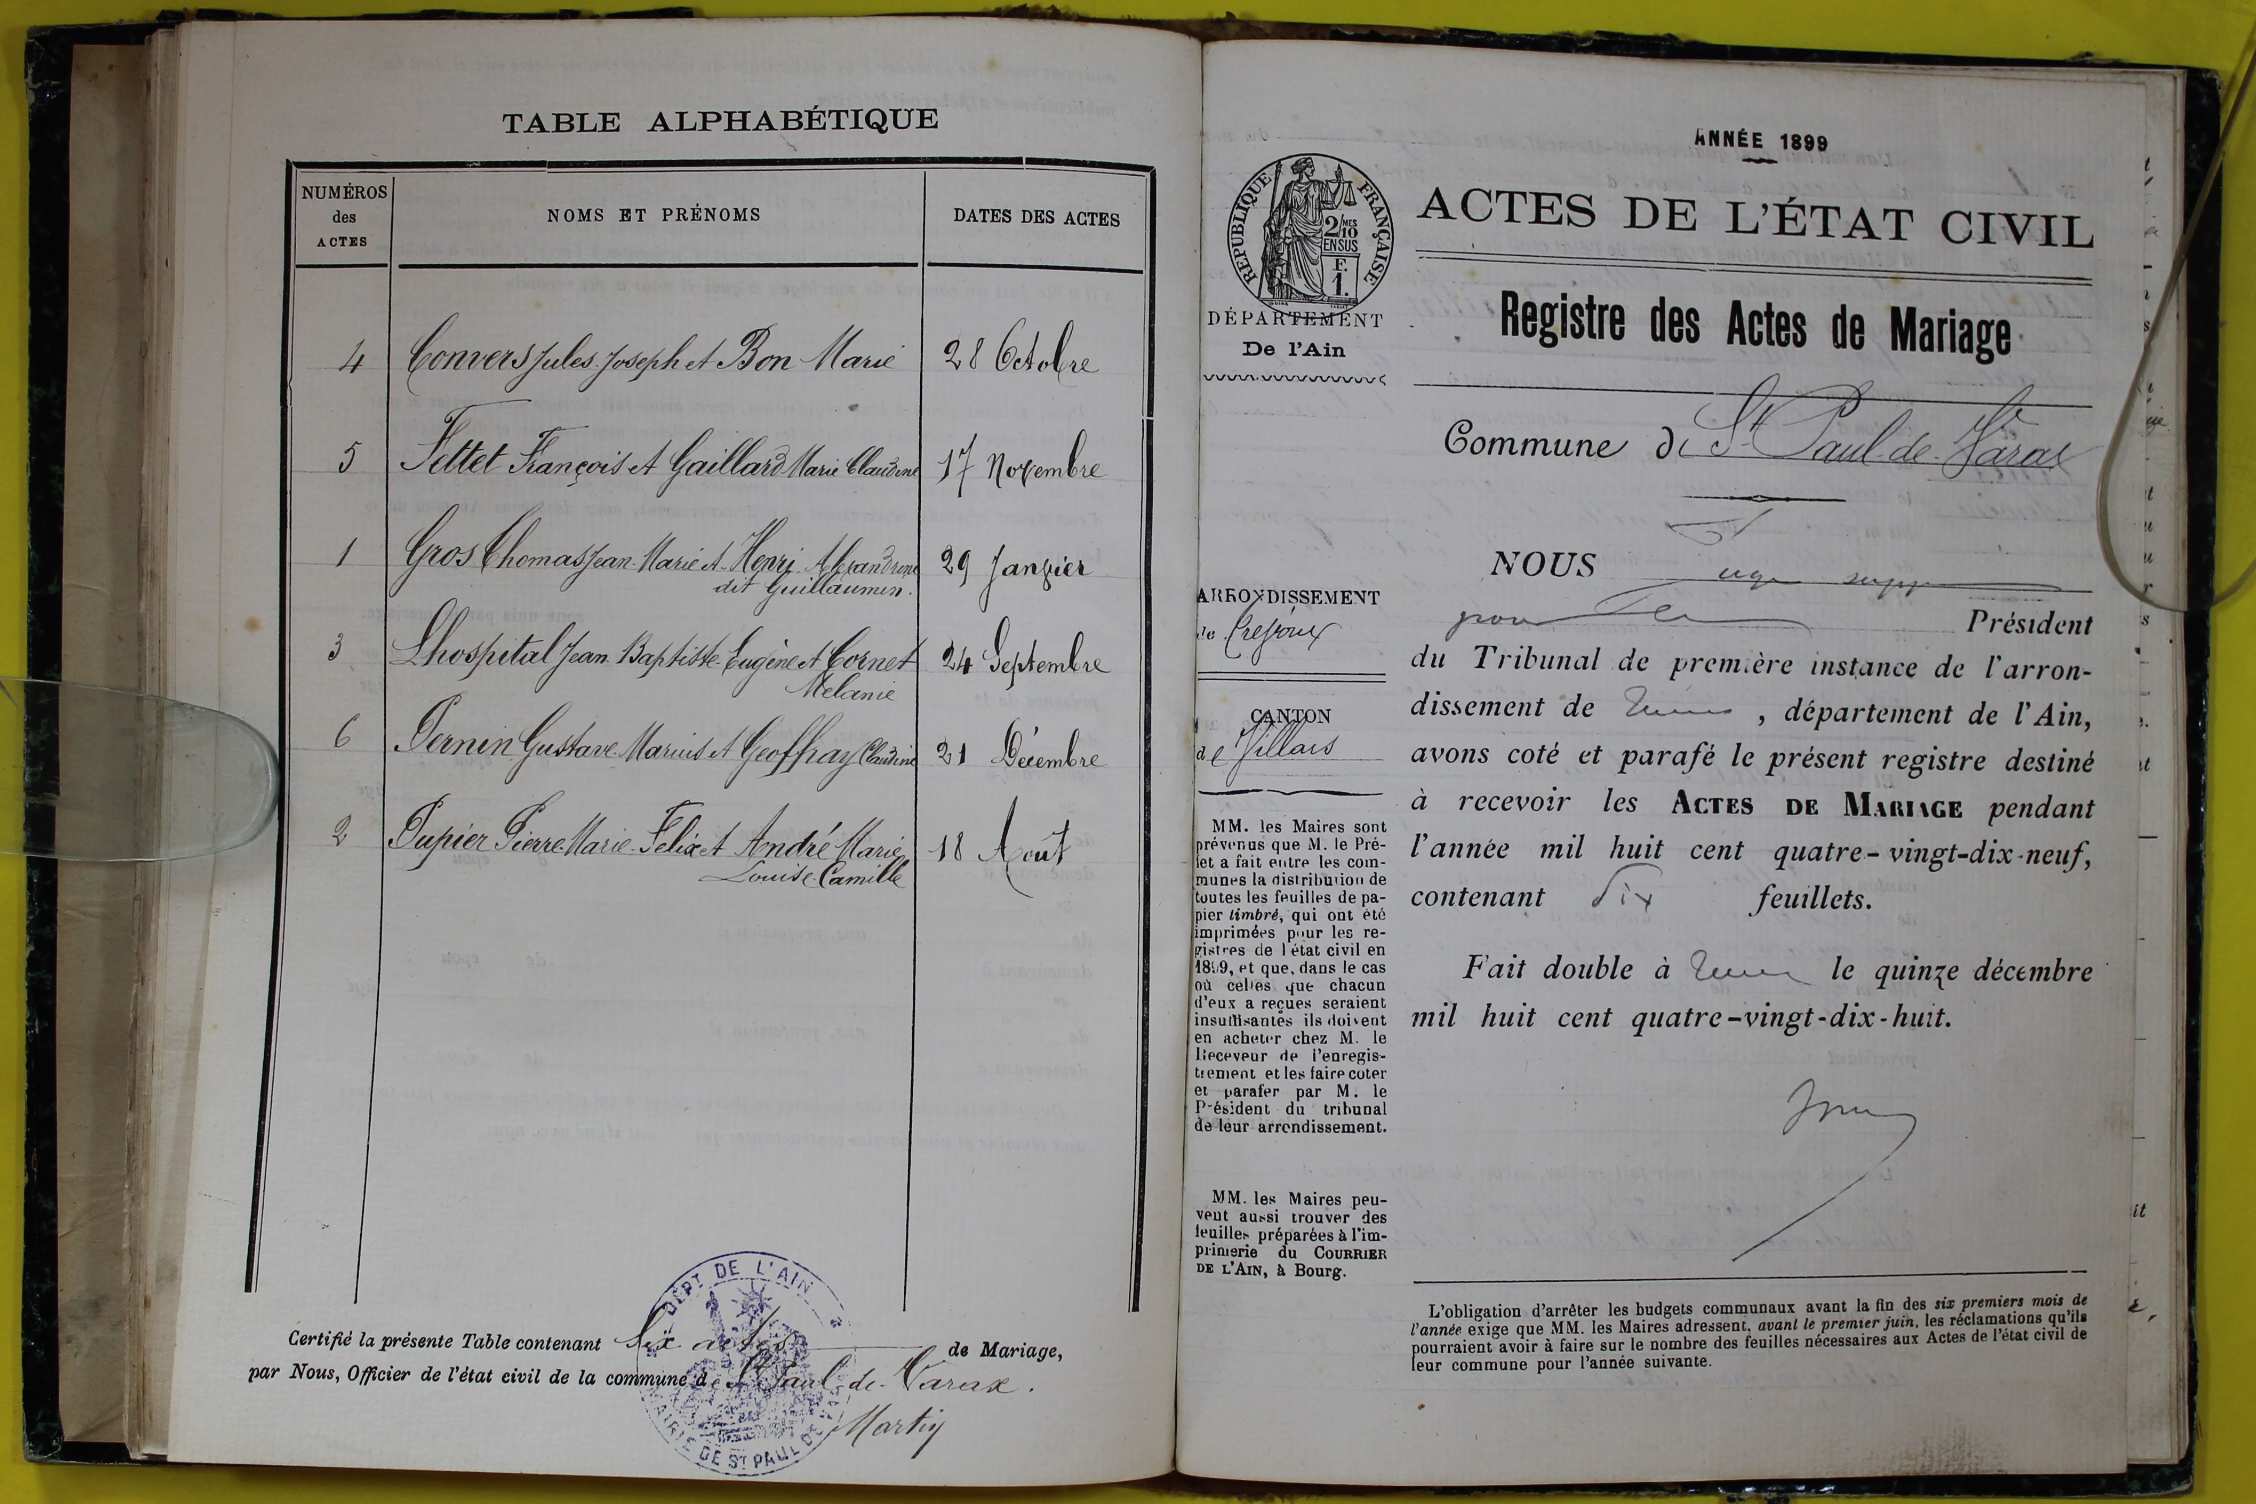 TABLE ALPHABÉTIQUE
NUMÉROS des ACTES
NOMS ET PRÉNOMS
DATES DES ACTES
4 Convers Jules Joseph et Bon Marie 28 Octobre
5 Fettet François et Gaillard Marie Claudine 17 Novembre
1 Gros Thomas Jean Marie et Henri Alexandrine 29 Janvier
dit Guillaumin.
3 Lhospital Jean Baptiste Eugène et Cornet 24 Septembre
Mélanie
6 Pernin Gustave Marius et Geoffray Claudine 21 Décembre
2 Pupier Pierre Marie Felix et André Marie 18 Août
Louise Camille
Certifié la présente Table contenant Six actes de Mariage,
par Nous, Officier de l'état civil de la commune de St Paul-de-Varax.
Martin
DÉPT DE L'AIN
MAIRIE DE ST PAUL DE
ANNÉE 1899
RÉPUBLIQUE FRANÇAISE
2/10 MES
EN SUS
F.
1.
DÉPARTEMENT
De l'Ain
ARRONDISSEMENT
de Trévoux
CANTON
de Villars
MM. les Maires sont
prévenus que M. le Pré-
fet a fait entre les com-
munes la distribution de
toutes les feuilles de pa-
pier timbré, qui ont été
imprimées pour les re-
gistres de l'état civil en
1899, et que, dans le cas
où celles que chacun
d'eux a reçues seraient
insuffisantes ils doivent
en acheter chez M. le
Receveur de l'enregis-
trement et les faire coter
et parafer par M. le
Président du tribunal
de leur arrondissement.
MM. les Maires peu-
vent aussi trouver des
feuilles préparées à l'im-
primerie du COURRIER
DE L'AIN, à Bourg.
ACTES DE L'ÉTAT CIVIL
Registre des Actes de Mariage
Commune de St Paul-de-Varax
NOUS
pour Président
du Tribunal de première instance de l'arron-
dissement de , département de l'Ain,
avons coté et parafé le présent registre destiné
à recevoir les ACTES DE MARIAGE pendant
l'année mil huit cent quatre-vingt-dix-neuf,
contenant Six feuillets.
Fait double à le quinze décembre
mil huit cent quatre-vingt-dix-huit.
L'obligation d'arrêter les budgets communaux avant la fin des six premiers mois de
l'année exige que MM. les Maires adressent, avant le premier juin, les réclamations qu'ils
pourraient avoir à faire sur le nombre des feuilles nécessaires aux Actes de l'état civil de
leur commune pour l'année suivante.